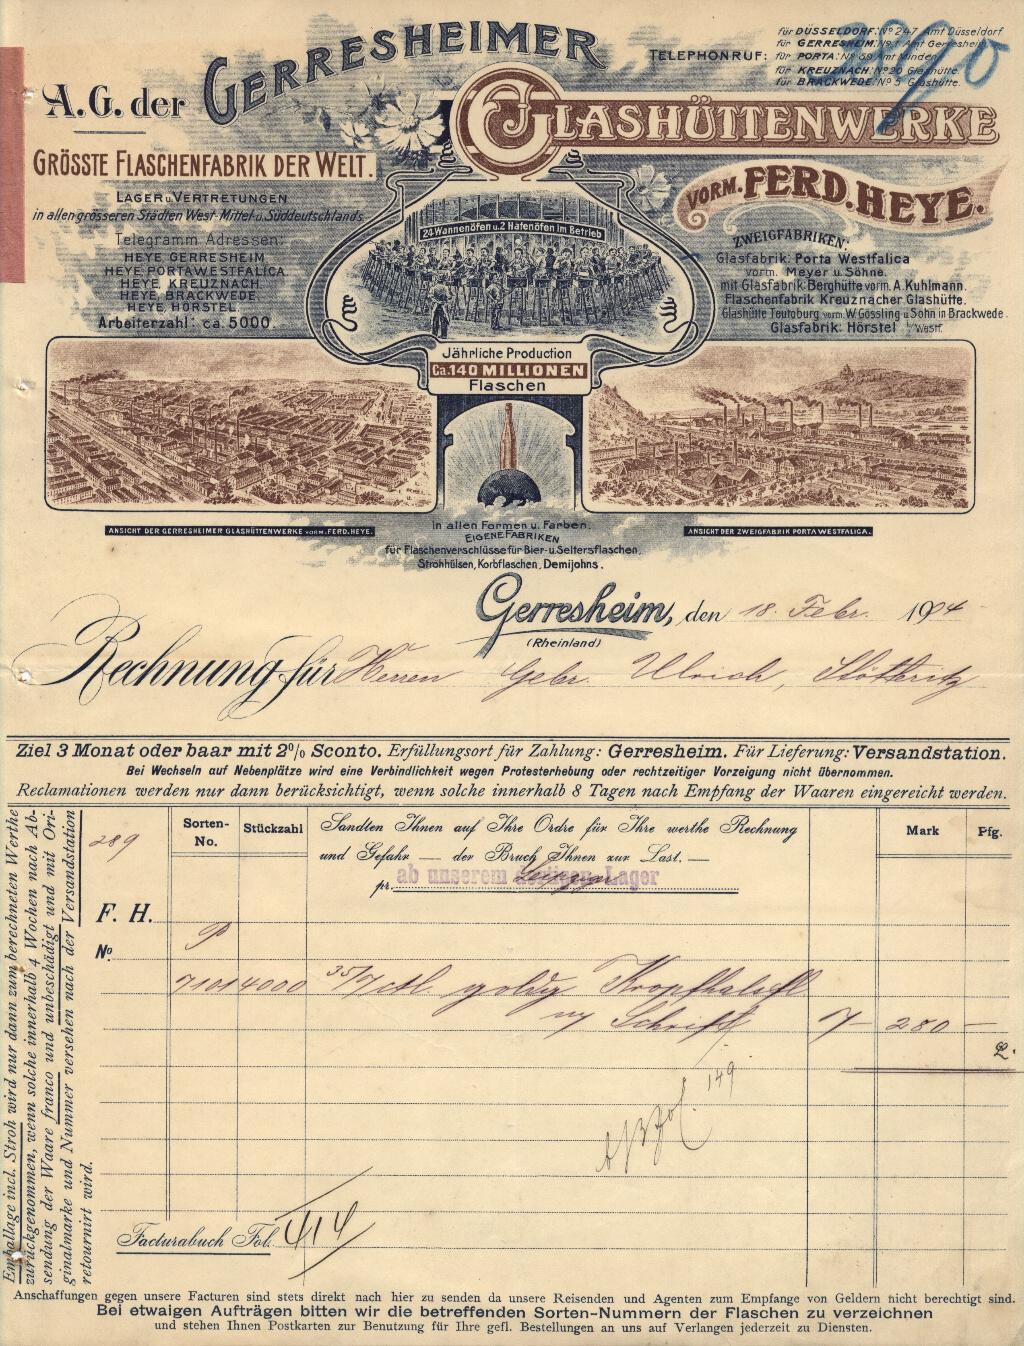 für DÜSSELDORF: Nº 247 Amt Düsseldorf
TELEPHONRUF: für GERRESHEIM: Nº 1 Amt Gerresheim
für PORTA: Nº 69 Amt Minden
für KREUZNACH: Nº 20 Glashütte.
für BRACKWEDE: Nº 5 Glashütte.
A.G. der GERRESHEIMER
GLASHÜTTENWERKE
VORM. FERD. HEYE.
GRÖSSTE FLASCHENFABRIK DER WELT.
LAGER u. VERTRETUNGEN
in allen grösseren Städten West- Mittel- u. Süddeutschlands
Telegramm Adressen:
HEYE GERRESHEIM
HEYE, PORTAWESTFALICA
HEYE, KREUZNACH
HEYE, BRACKWEDE
HEYE, HÖRSTEL
Arbeiterzahl: ca. 5000.
24 Wannenöfen u. 2 Hafenöfen im Betrieb
ZWEIGFABRIKEN:
Glasfabrik: Porta Westfalica
vorm. Meyer u. Söhne.
mit Glasfabrik: Berghütte vorm. A. Kuhlmann.
Flaschenfabrik Kreuznacher Glashütte.
Glashütte Teutoburg vorm. W. Gössling u. Sohn in Brackwede.
Glasfabrik: Hörstel i/Westf.
Jährliche Production
Ca. 140 MILLIONEN
Flaschen
ANSICHT DER GERRESHEIMER GLASHÜTTENWERKE VORM. FERD. HEYE.
ANSICHT DER ZWEIGFABRIK PORTA WESTFALICA.
in allen Formen u. Farben.
EIGENE FABRIKEN
für Flaschenverschlüsse für Bier- u. Seltersflaschen,
Strohhülsen, Korbflaschen, Demijohns.
Gerresheim, den 18. Febr. 1904
(Rheinland)
Rechnung für Herren Gebr. Ulrich, Stötteritz
Ziel 3 Monat oder baar mit 2% Sconto. Erfüllungsort für Zahlung: Gerresheim. Für Lieferung: Versandstation.
Bei Wechseln auf Nebenplätze wird eine Verbindlichkeit wegen Protesterhebung oder rechtzeitiger Vorzeigung nicht übernommen.
Reclamationen werden nur dann berücksichtigt, wenn solche innerhalb 8 Tagen nach Empfang der Waaren eingereicht werden.
Emballage incl. Stroh wird nur dann zum berechneten Werthe
zurückgenommen, wenn solche innerhalb 4 Wochen nach Ab-
sendung der Waare franco und unbeschädigt und mit Ori-
ginalmarke und Nummer versehen nach der Versandstation
retournirt wird.
289
Sorten-No.
Stückzahl
Sandten Ihnen auf Ihre Ordre für Ihre werthe Rechnung
und Gefahr — der Bruch Ihnen zur Last. —
pr. ab unserem Leipziger Lager
Mark
Pfg.
F. H.
No.
P
7101 4000 35/7 ctl. goldg. Kropfhalsfl
m/ Schrift 7- 280 -
149
Facturabuch Fol. 414
Anschaffungen gegen unsere Facturen sind stets direkt nach hier zu senden da unsere Reisenden und Agenten zum Empfange von Geldern nicht berechtigt sind.
Bei etwaigen Aufträgen bitten wir die betreffenden Sorten-Nummern der Flaschen zu verzeichnen
und stehen Ihnen Postkarten zur Benutzung für Ihre gefl. Bestellungen an uns auf Verlangen jederzeit zu Diensten.